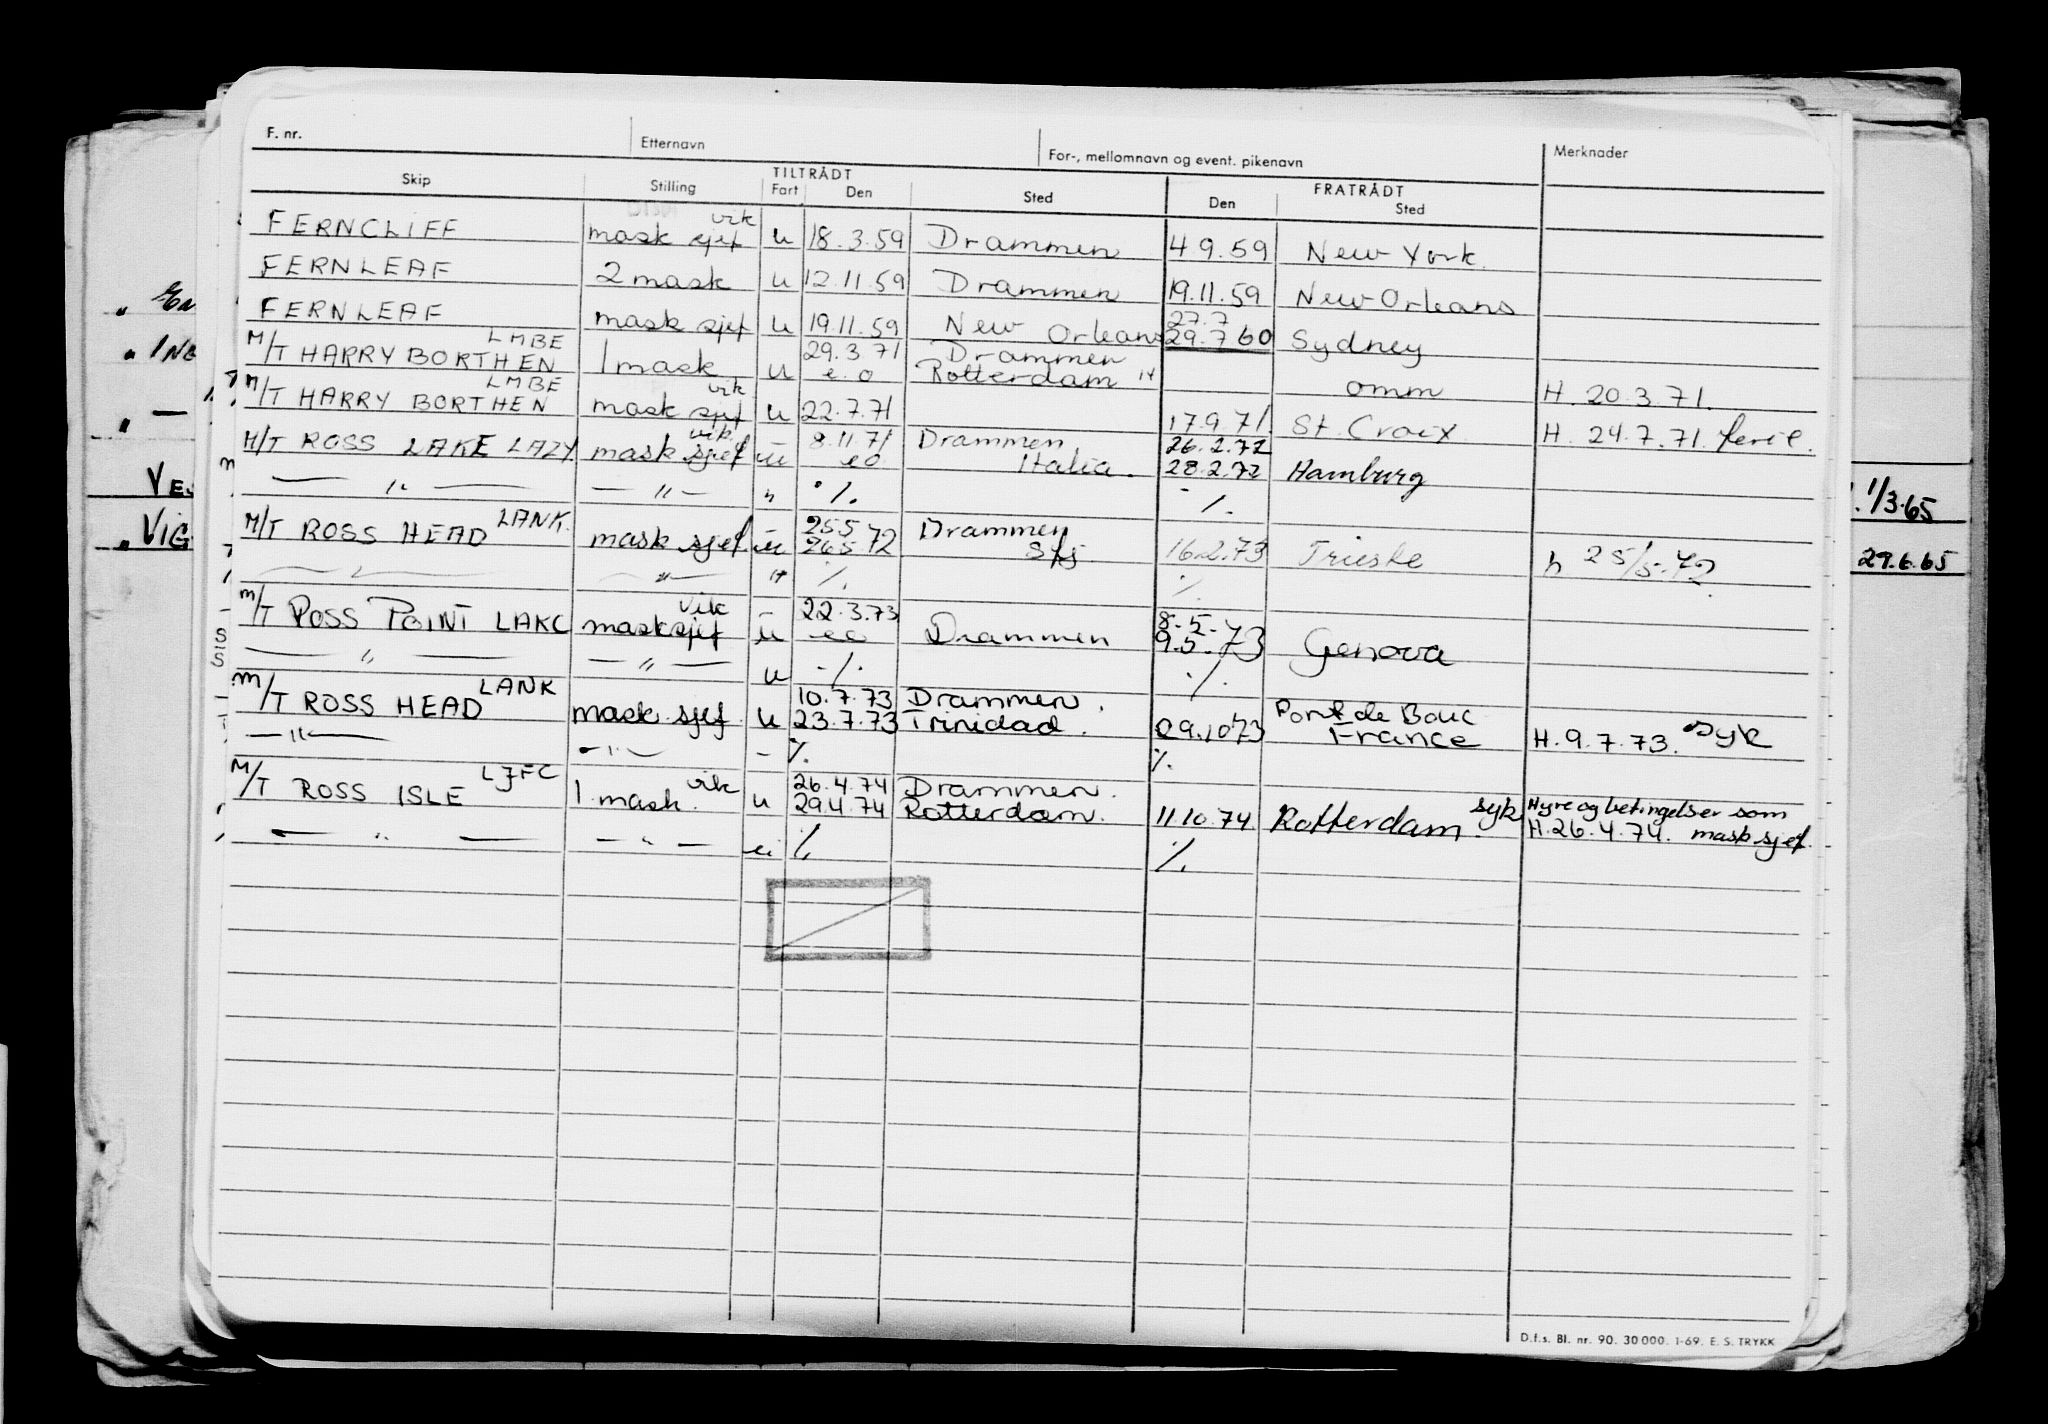 F. nr. Etternavn For-, mellomnavn og event. pikenavn Merknader
TILTRÅDT FRATRÅDT
Skip Stilling Fart Den Sted Den Sted
FERNCLIFF mask sjef vik u 18.3.59 Drammen 4.9.59 New York.
FERNLEAF 2 mask u 12.11.59 Drammen 19.11.59 New Orleans
FERNLEAF mask sjef u 19.11.59 New Orleans 27.7 29.7 60 Sydney
M/T HARRY BORTHEN LMBE 1 mask u 29.3 71 e.o Drammen Rotterdam omm H. 20.3.71.
M/T HARRY BORTHEN LMBE mask sjef vik u 22.7.71 17.9.71 St. Croix H. 24.7.71. ferie.
M/T ROSS LAKE LAZY mask sjef vik. u 8.11.71 eo Drammen Italia. 26.2.72 28.2.72 Hamburg
— " — — " — " ·/. ·/.
M/T ROSS HEAD LANK. mask sjef u 25.5 26.5 72 Drammen 16.2.73 Trieste h 25/5-72
— " — — " — " ·/. ·/.
M/T ROSS POINT LAKC mask sjef vik u 22.3.73 eo Drammen 8.5.73 9.5.73 Genova
— " — — " — u ·/. ·/.
M/T ROSS HEAD LANK mask. sjef u 10.7.73 23.7.73 Drammen. Trinidad. 29.10 73 Port de Bouc France H. 9.7.73. syk
— " — — " — - ·/. ·/.
M/T ROSS ISLE LJFC 1. mask. vik u 26.4.74 29.4.74 Drammen. Rotterdam. 11.10.74 Rotterdam. syk Hyre og betingelser som
H.26.4.74. mask sjef.
— " — — " — ·/. ·/.
D.f.s. Bl. nr. 90. 30 000. 1-69. E. S. TRYKK
VIG
1/3.65
29.6.65